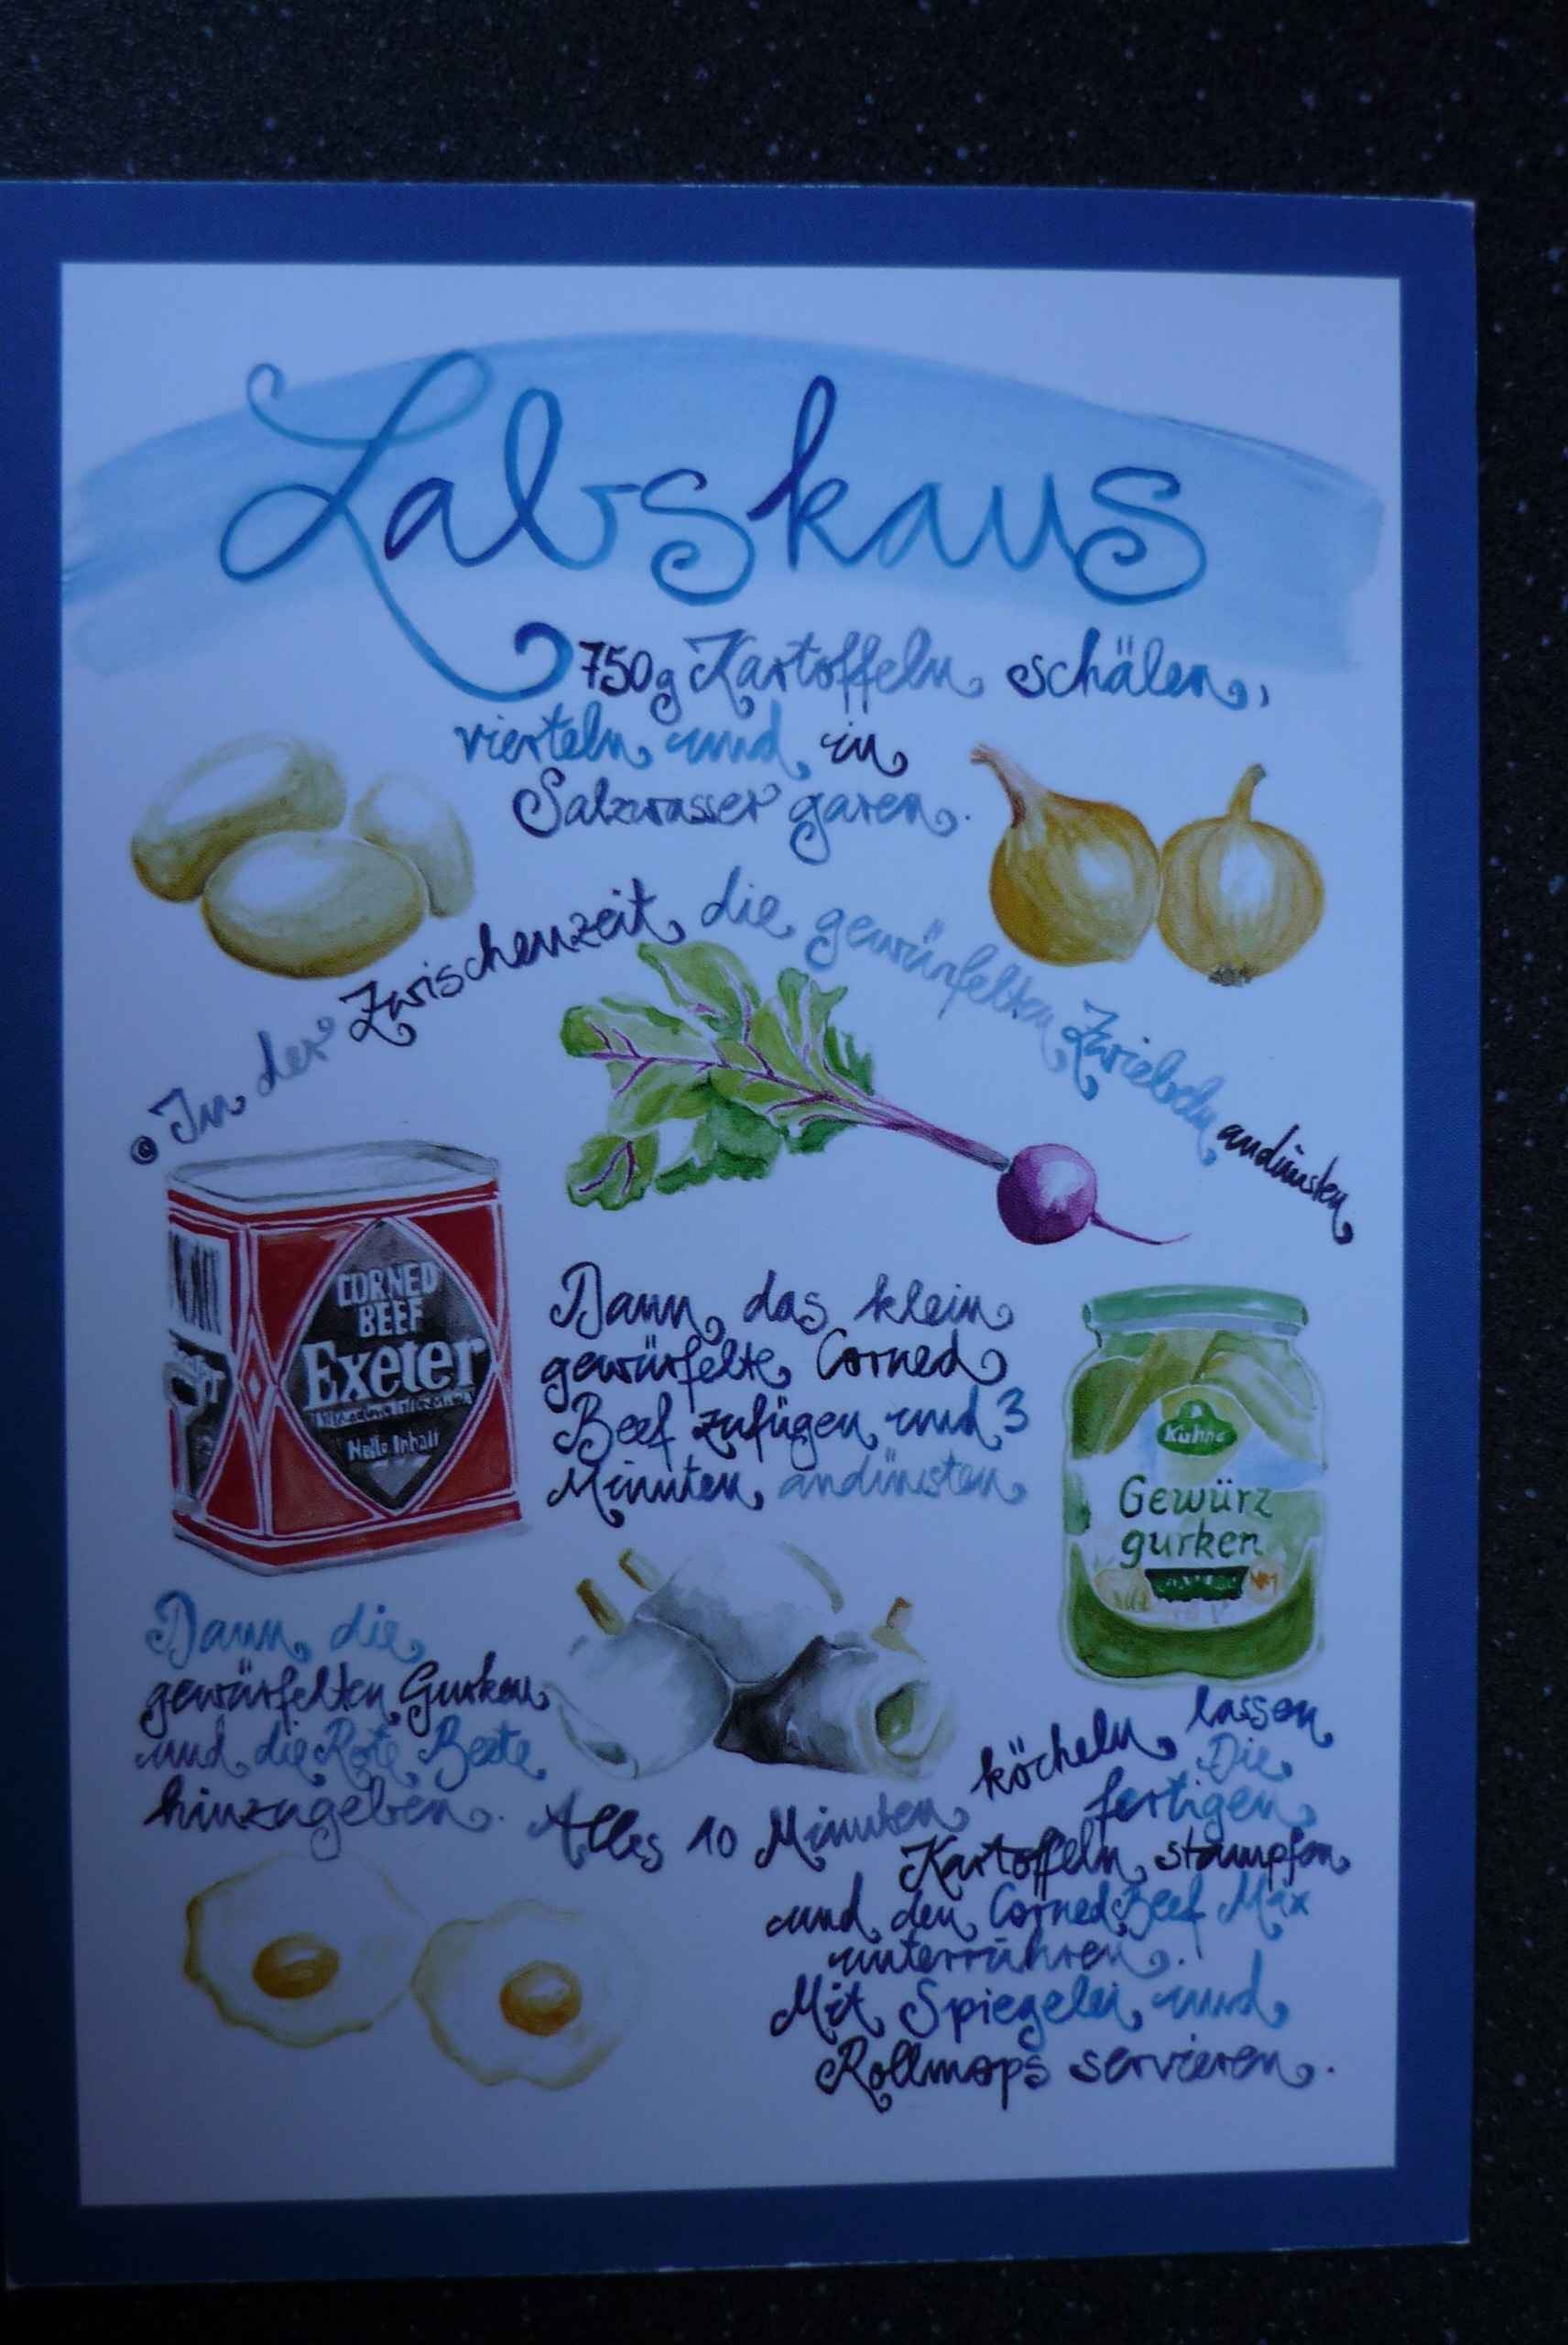 Labskaus
750g Kartoffeln schälen,
vierteln und in
Salzwasser garen.
In der Zwischenzeit die gewürfelten Zwiebeln andünsten
CORNED
BEEF
Exeter
Netto Inhalt
Dann das klein
gewürfelte Corned
Beef zufügen und 3
Minuten andünsten
Kühne
Gewürz
gurken
Dann die
gewürfelten Gurken
und die Rote Beete
hinzugeben.
Alles 10 Minuten köcheln lassen
Die
fertigen
Kartoffeln stampfen
und den Corned Beef Mix
unterrühren.
Mit Spiegelei und
Rollmops servieren.